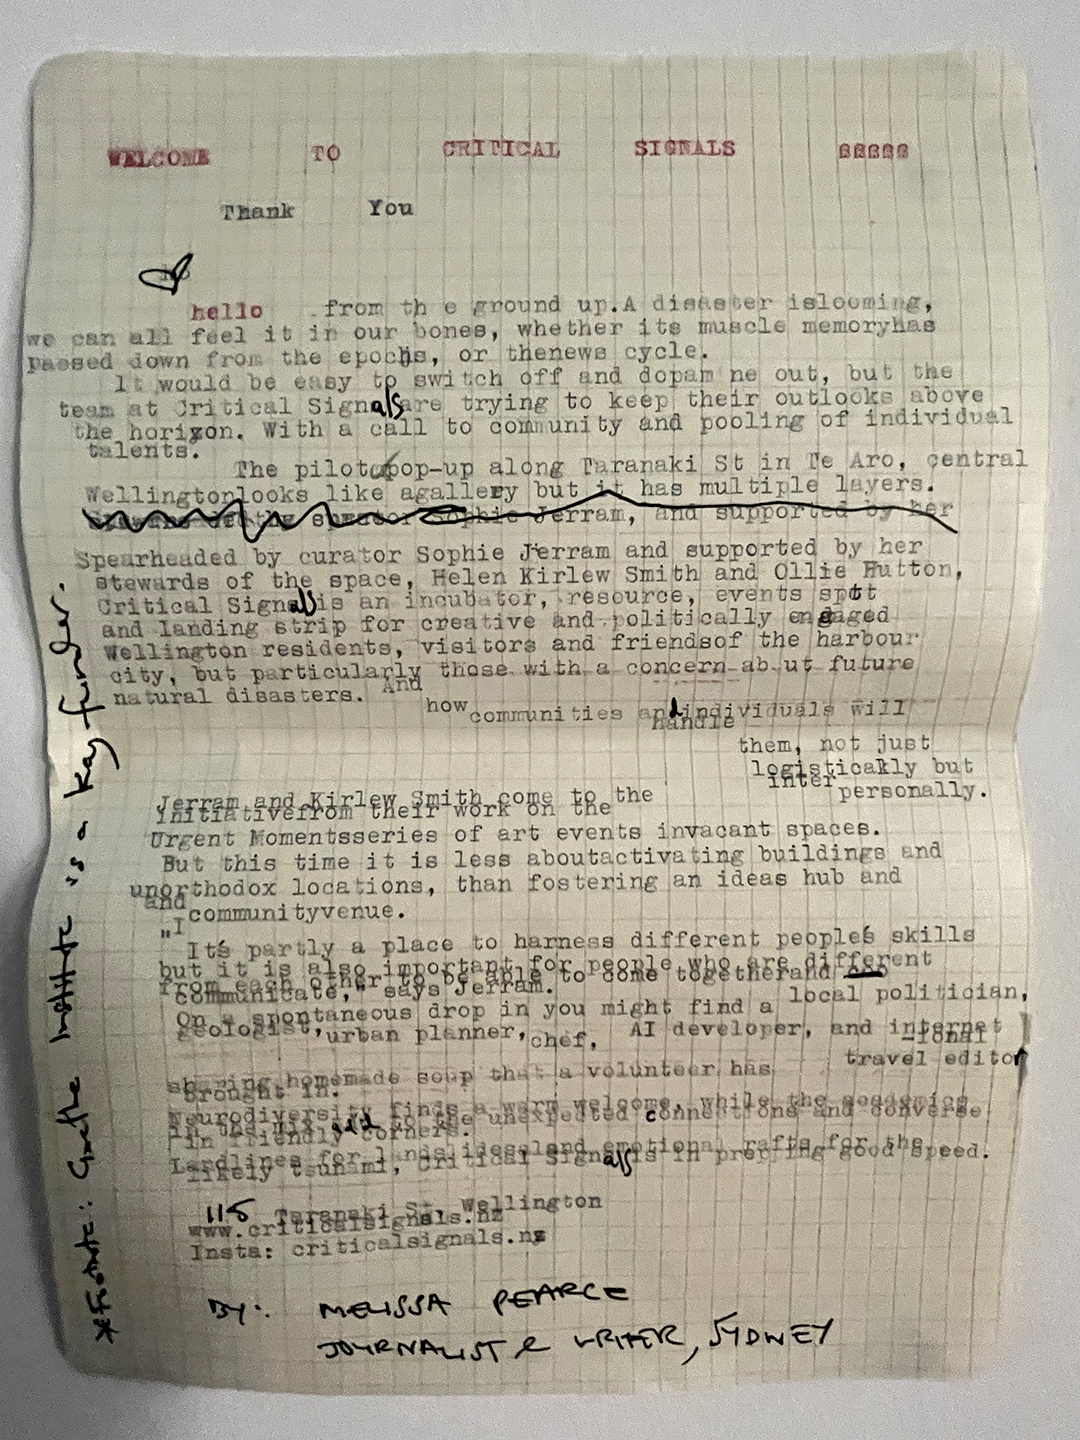 WELCOME TO CRITICAL SIGNALS sssss
Thank You
hello from th e ground up.A disaster islooming,
we can all feel it in our bones, whether its muscle memoryhas
passed down from the epochs, or thenews cycle.
It would be easy to switch off and dopam ne out, but the
team at Critical Signals are trying to keep their outlooks above
the horizon. With a call to community and pooling of individual
talents.
The pilot pop-up along Taranaki St in Te Aro, central
Wellingtonlooks like agallery but it has multiple layers.
Sophie Jerram, and supported by her
Spearheaded by curator Sophie Jerram and supported by her
stewards of the space, Helen Kirlew Smith and Ollie Hutton,
Critical Signals is an incubator, resource, events spot
and landing strip for creative and politically engaged
Wellington residents, visitors and friendsof the harbour
city, but particularly those with a concern ab ut future
natural disasters. And
how communities and individuals will
handle
them, not just
logistically but
inter personally.
Jerram and Kirlew Smith come to the
initiativefrom their work on the
Urgent Momentsseries of art events invacant spaces.
But this time it is less aboutactivating buildings and
unorthodox locations, than fostering an ideas hub and
and communityvenue.
"I
It's partly a place to harness different people's skills
but it is also important for people who are different
from each other to be able to come togetherand
communicate," says Jerram.
On a spontaneous drop in you might find a local politician,
geologist, urban planner, chef, AI developer, and internat
-ional
travel editor
sharing homemade soup that a volunteer has
brought in.
Neurodiversity finds a warm welcome, while the academics
in the mix add to the unexpected connections and converse
in friendly corners.
Landlines for lands, ideas and emotional rafts for the
likely tsunami, Critical Signals is in prepping good speed.
115 Taranaki St, Wellington
www.criticalsignals.nz
Insta: criticalsignals.nz
BY: MELISSA PEARCE
JOURNALIST & WRITER, SYDNEY
*Footnote: Goethe Institute is a key funder.